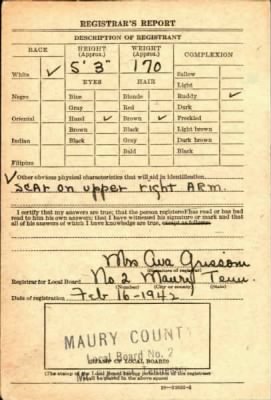 REGISTRAR'S REPORT
DESCRIPTION OF REGISTRANT
RACE HEIGHT (Approx.) WEIGHT (Approx.) COMPLEXION
5' 3" 170
White ✓ EYES HAIR Sallow
Light
Negro Blue Blonde Ruddy ✓
Gray Red Dark
Oriental Hazel ✓ Brown ✓ Freckled
Brown Black Light brown
Indian Black Gray Dark brown
Bald Black
Filipino
✓ Other obvious physical characteristics that will aid in identification
scar on upper right ARM.
I certify that my answers are true; that the person registered has read or has had read to him his own answers; that I have witnessed his signature or mark and that all of his answers of which I have knowledge are true, except as follows:
Mrs Ava Grissom
(Signature of registrar)
Registrar for Local Board No. 2 Maury Tenn.
(Number) (City or county) (State)
Date of registration Feb 16-1942
MAURY COUNTY
Local Board No. 2
Tennessee
(STAMP OF LOCAL BOARD)
(The stamp of the Local Board having jurisdiction of the registrant shall be placed in the above space)